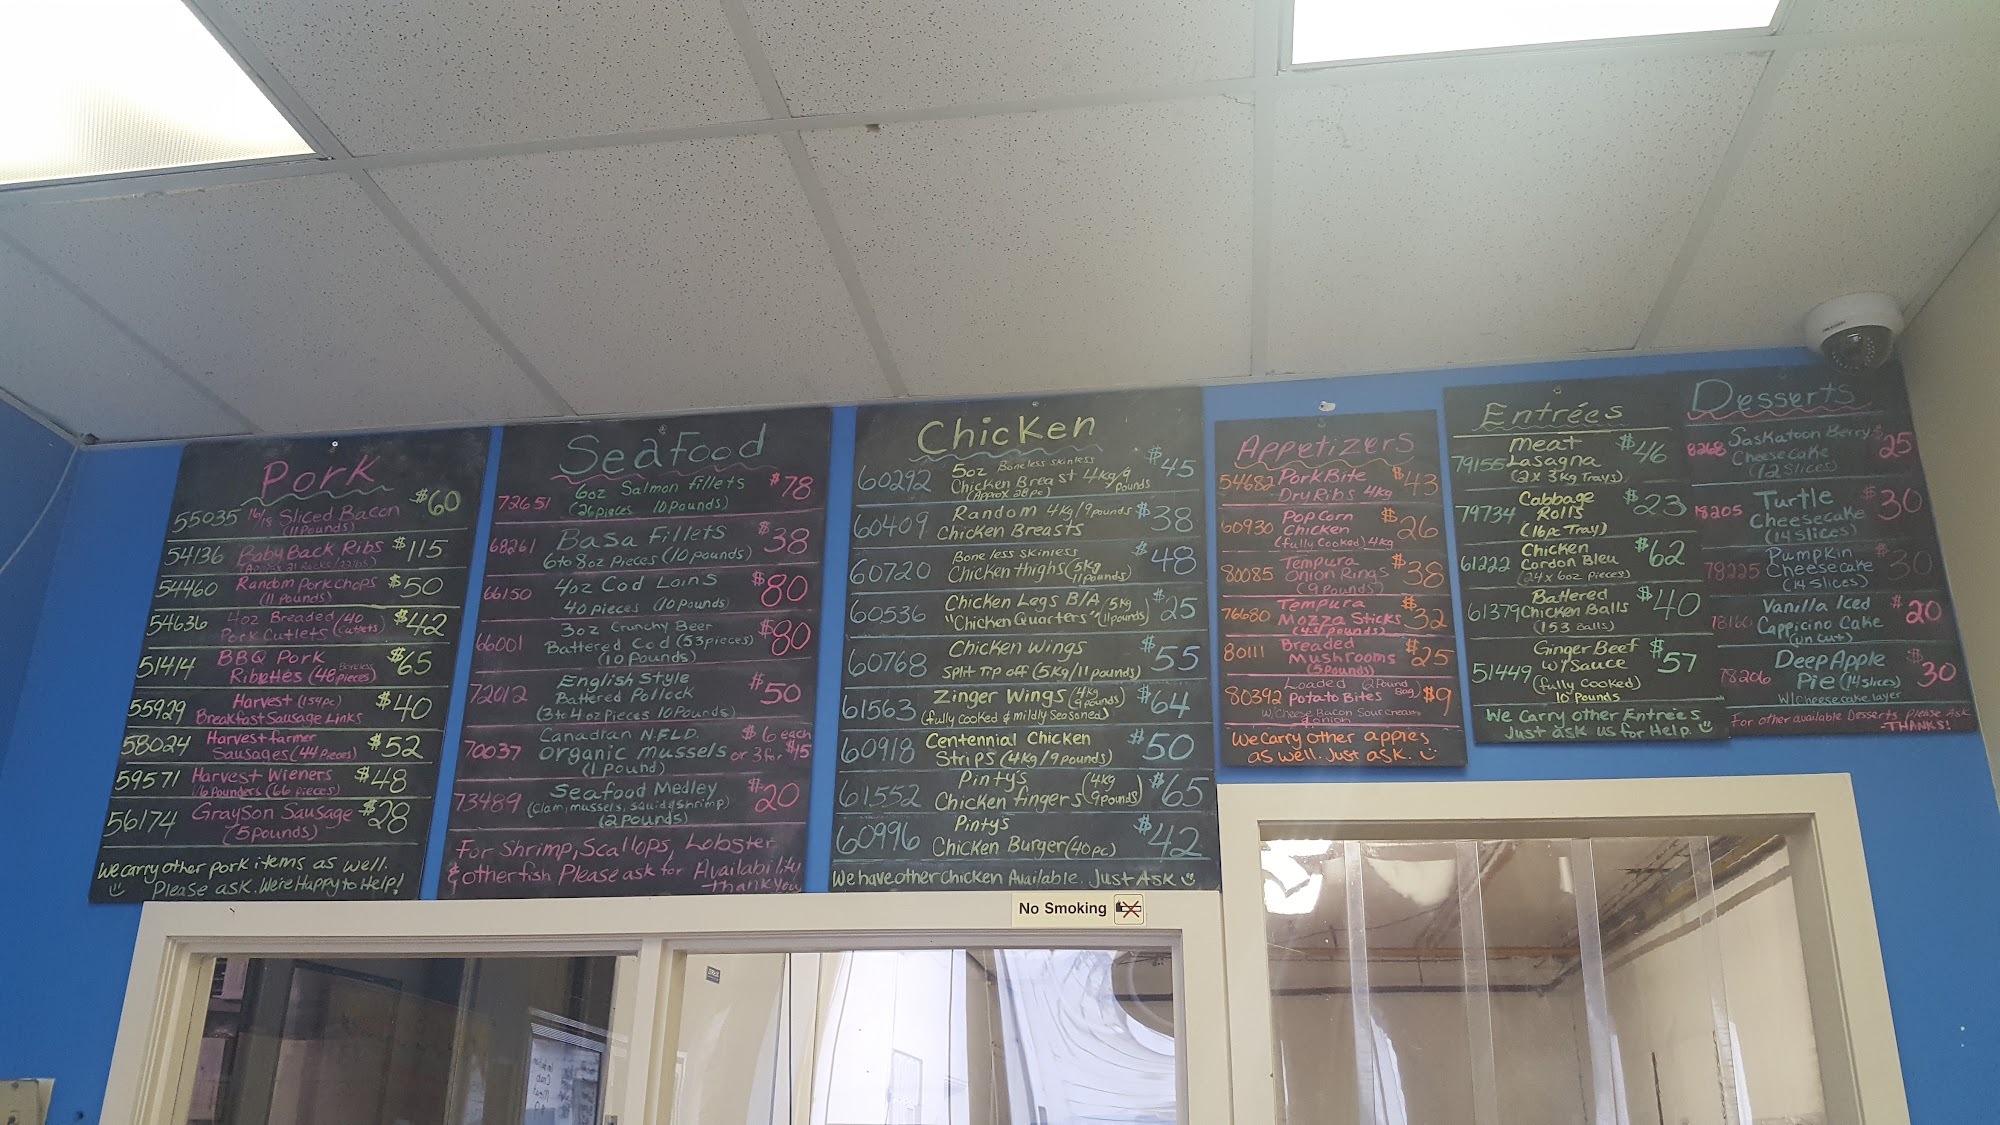 Pork
55035 16/18 Sliced Bacon $60
(11 Pounds)
54136 Baby Back Ribs $115
54460 Random Pork chops $50
(11 Pounds)
54636 4oz Breaded/40 $42
Pork Cutlets (cutlets)
51414 BBQ Pork $65
Boneless
Riblettes (48 pieces)
55929 Harvest (154pc) $40
Breakfast Sausage Links
58024 Harvest farmer $52
Sausages (44 Pieces)
59571 Harvest Wieners $48
(66 pieces)
56174 Grayson Sausage $28
(5 pounds)
We carry other pork items as well.
Please ask. We're Happy to Help!
Seafood
72651 6oz Salmon fillets $78
(26 pieces 10 pounds)
68261 Basa Fillets $38
6 to 8oz pieces (10 pounds)
66150 4oz Cod Loins $80
40 pieces (10 pounds)
66001 3oz Crunchy Beer $80
Battered Cod (53 pieces)
(10 Pounds)
72012 English Style $50
Battered Pollock
(3 to 4oz pieces 10 Pounds)
Canadian N.F.L.D. $6 each
70037 Organic mussels or 3 for $15
(1 Pound)
73489 Seafood Medley $20
(Clam, mussels, squid & shrimp)
(2 Pounds)
For Shrimp, Scallops, Lobster
& other fish Please ask for Availability
Thank you
Chicken
60292 5oz Boneless skinless $45
Chicken Breast 4kg/9 pounds
(Approx 28pc)
60409 Random 4kg/9 pounds $38
Chicken Breasts
60720 Boneless skinless $48
Chicken thighs (5kg 11 pounds)
60536 Chicken Legs B/A (5kg $25
"Chicken Quarters" 11 pounds)
60768 Chicken wings $55
Split Tip off (5kg/11 pounds)
61563 Zinger Wings (4kg 9 pounds) $64
(fully cooked & mildly seasoned)
60918 Centennial Chicken $50
Strips (4kg/9 pounds)
61552 Pinty's (4kg $65
Chicken fingers 9 pounds)
60996 Pinty's $42
Chicken Burger (40pc)
We have other chicken Available. Just Ask
Appetizers
54682 Pork Bite $43
Dry Ribs 4kg
60930 Pop Corn $26
Chicken
(fully Cooked) 4kg
80085 Tempura $38
Onion Rings
(9 Pounds)
76680 Tempura $32
Mozza Sticks
(4.4 pounds)
80111 Breaded $25
Mushrooms
(5 pounds)
80392 Loaded (2 Pound $9
Potato Bites Bag)
W/ Cheese Bacon Sour cream
& onion
We carry other appies
as well. Just ask.
Entrées
79155 Meat $46
Lasagna
(2 x 3kg Trays)
79734 Cabbage $23
Rolls
(16pc Tray)
61222 Chicken $62
Cordon Bleu
(24 x 6oz pieces)
61379 Battered $40
Chicken Balls
(153 Balls)
51449 Ginger Beef $57
w/ Sauce
(fully Cooked)
10 Pounds
We carry other Entrées
Just ask us for Help.
Desserts
8268 Saskatoon Berry $25
Cheesecake
(12 Slices)
78205 Turtle $30
Cheesecake
(14 Slices)
78225 Pumpkin $30
Cheesecake
(14 Slices)
78160 Vanilla Iced $20
Cappicino Cake
(uncut)
78206 Deep Apple $30
Pie (14 slices)
W/ Cheesecake layer
For other available Desserts Please Ask
-THANKS!
No Smoking